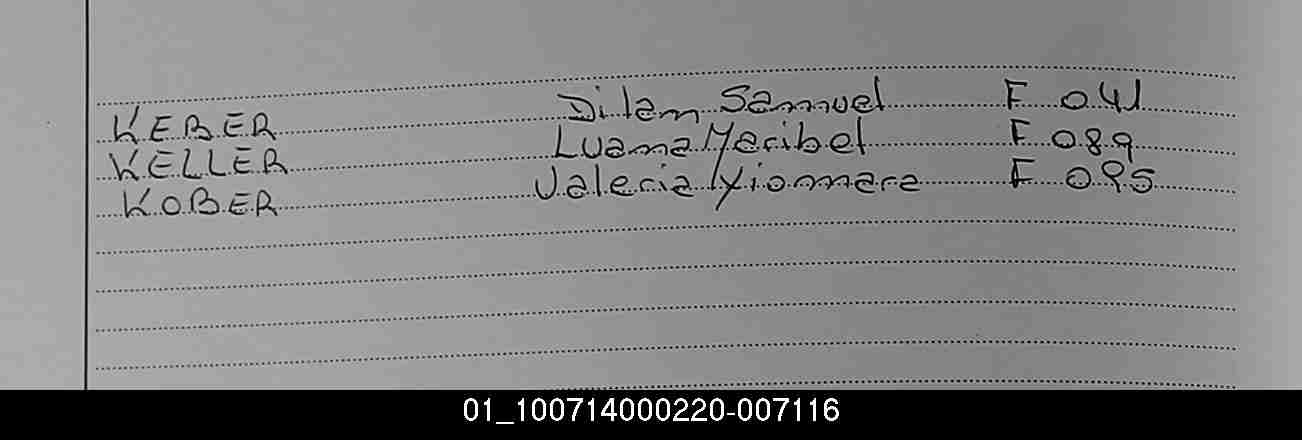 KEBER Dilan Samuel F 041
KELLER Luana Maribel F 089
KOBER Valeria Xiomara F 095
01_100714000220-007116